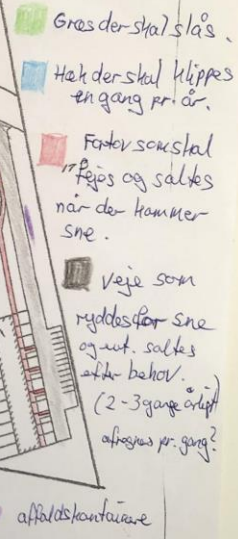 Græs der skal slås.
Hæk der skal klippes
en gang pr. år.
Fortov som skal
fejes og saltes
når der kommer
sne.
veje som
ryddes for sne
og evt. saltes
efter behov.
(2-3 gange årligt)
afregnes pr. gang?
affaldskontainere